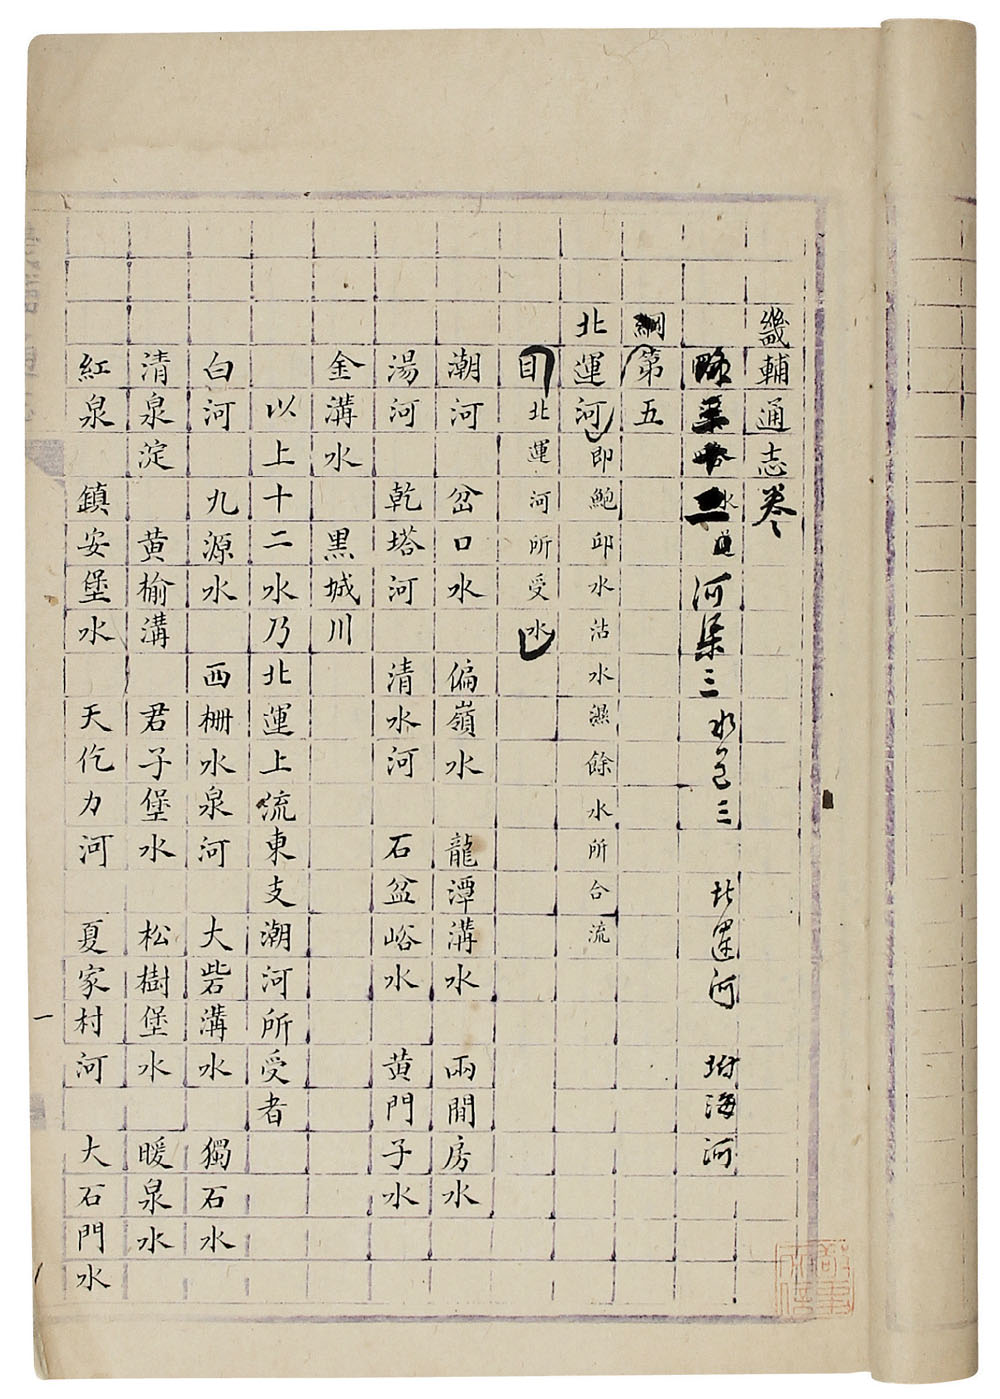 畿輔通志卷
略 水道 河渠三 水道三 北運河 坿海河
綱第五
北運河 即鮑邱水沽水濕餘水所合流
目 北運河所受水
潮河 岔口水 偏嶺水 龍潭溝水 兩間房水
湯河 乾塔河 清水河 石盆峪水 黄門子水
金溝水 黑城川
以上十二水乃北運上流東支潮河所受者
白河 九源水 西柵水泉河 大砦溝水 獨石水
清泉淀 黄榆溝 君子堡水 松樹堡水 暖泉水
紅泉 鎮安堡水 天仡力河 夏家村河 大石門水
一